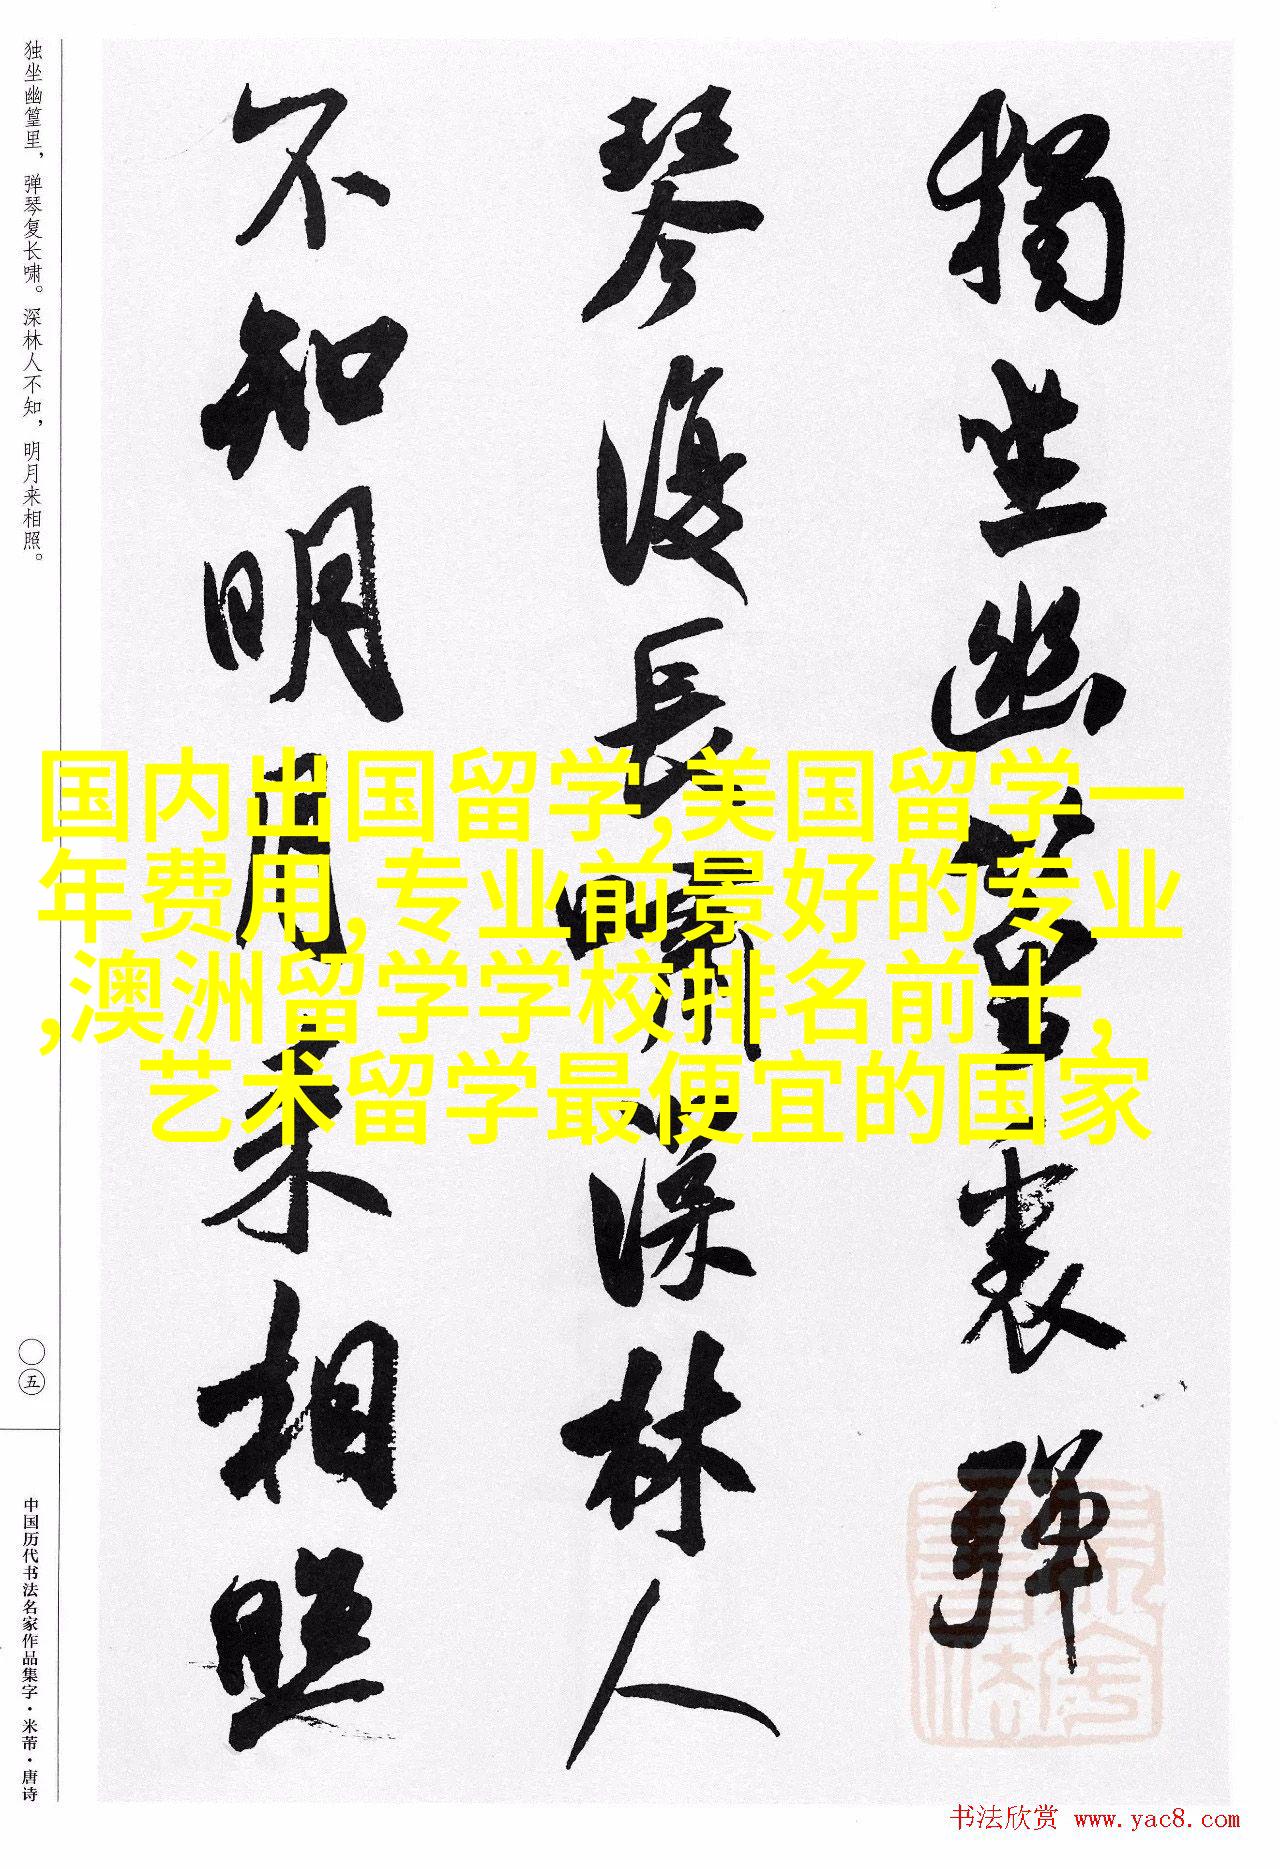 獨坐幽篁裏彈
琴復長嘯深林人
不知明月来相照
独坐幽篁里，弹琴复长啸。深林人不知，明月来相照。
〇五
中国历代书法名家作品集字·米芾·唐诗
国内出国留学,美国留学一
年费用,专业前景好的专业
,澳洲留学学校排名前十,
艺术留学最便宜的国家
书法欣赏 www.yac8.com